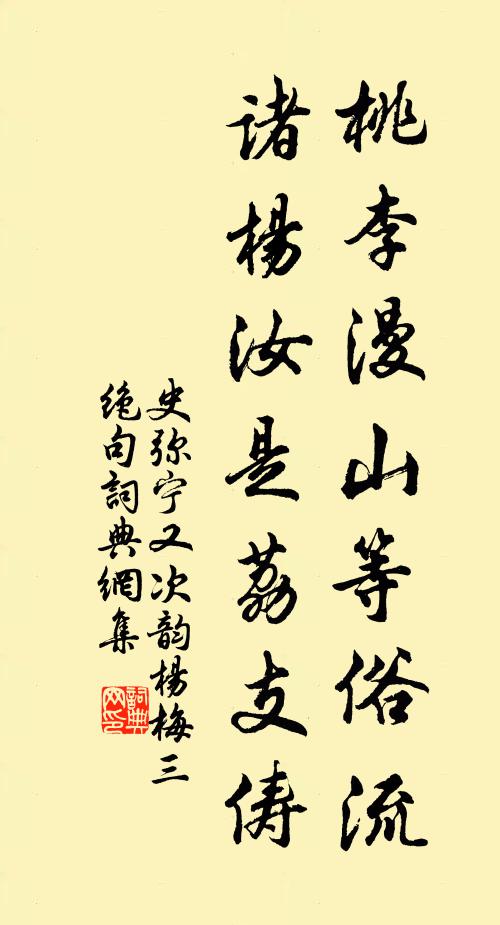 桃李漫山等俗流
诸楊汝是荔支俦
史弥宁又次韵楊梅三
绝句詞典網集
詞典网印